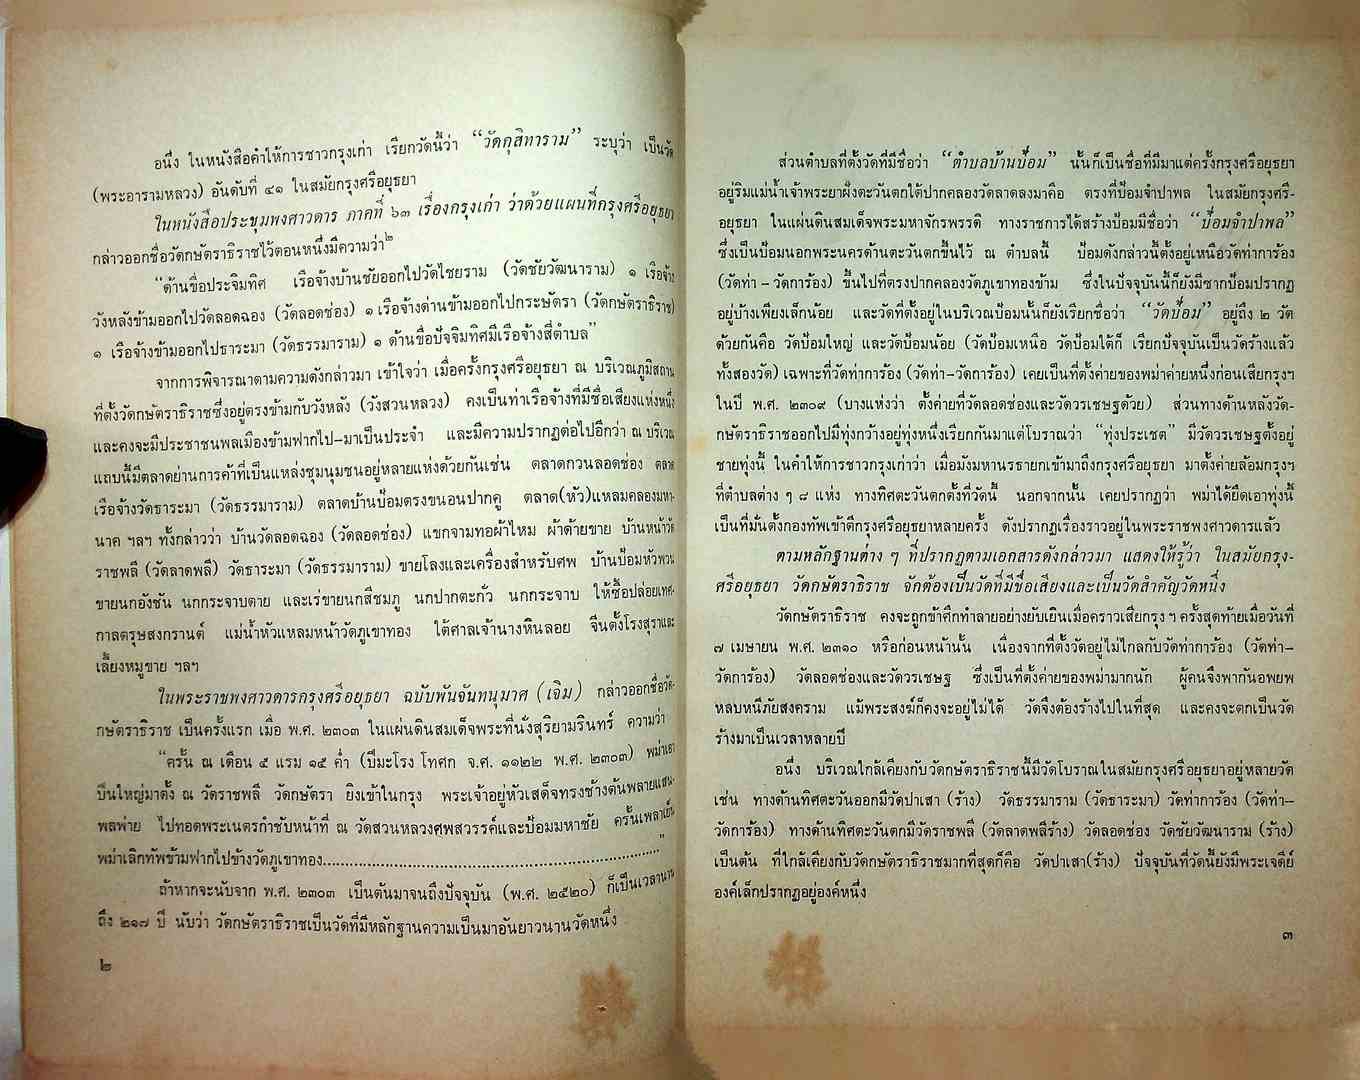 อนึ่ง ในหนังสือคำให้การชาวกรุงเก่า เรียกวัดนี้ว่า “วัดกุสิทาราม” ระบุว่า เป็นวัด
(พระอารามหลวง) อันดับที่ ๔๑ ในสมัยกรุงศรีอยุธยา
ในหนังสือประชุมพงศาวดาร ภาคที่ ๖๓ เรื่องกรุงเก่า ว่าด้วยแผนที่กรุงศรีอยุธยา
กล่าวออกชื่อวัดกษัตราธิราชไว้ตอนหนึ่งมีความว่า๒
“ด้านขื่อประจิมทิศ เรือจ้างบ้านชัยออกไปวัดไชยราม (วัดชัยวัฒนาราม) ๑ เรือจ้าง
วังหลังข้ามออกไปวัดลอดฉอง (วัดลอดช่อง) ๑ เรือจ้างด่านข้ามออกไปกระษัตรา (วัดกษัตราธิราช)
๑ เรือจ้างข้ามออกไปธาระมา (วัดธรรมาราม) ๑ ด้านขื่อปัจจิมทิศมีเรือจ้างสี่ตำบล”
จากการพิจารณาตามความดังกล่าวมา เข้าใจว่า เมื่อครั้งกรุงศรีอยุธยา ณ บริเวณภูมิสถาน
ที่ตั้งวัดกษัตราธิราชซึ่งอยู่ตรงข้ามกับวังหลัง (วังสวนหลวง) คงเป็นท่าเรือจ้างที่มีชื่อเสียงแห่งหนึ่ง
และคงจะมีประชาชนพลเมืองข้ามฟากไป–มาเป็นประจำ และมีความปรากฏต่อไปอีกว่า ณ บริเวณ
แถบนี้มีตลาดย่านการค้าที่เป็นแหล่งชุมนุมชนอยู่หลายแห่งด้วยกันเช่น ตลาดกวนลอดช่อง ตลาด
เรือจ้างวัดธาระมา (วัดธรรมาราม) ตลาดบ้านป้อมตรงขนอนปากคู ตลาด(หัว)แหลมคลองมหา-
นาค ฯลฯ ทั้งกล่าวว่า บ้านวัดลอดฉอง (วัดลอดช่อง) แขกจามทอผ้าไหม ผ้าด้ายขาย บ้านหน้าวัด
ราชพลี (วัดลาดพลี) วัดธาระมา (วัดธรรมาราม) ขายโลงและเครื่องสำหรับศพ บ้านป้อมหัวพวน
ขายนกอังชัน นกกระจาบตาย และเร่ขายนกสีชมภู นกปากตะกั่ว นกกระจาบ ให้ซื้อปล่อยเทศ-
กาลตรุษสงกรานต์ แม่น้ำหัวแหลมหน้าวัดภูเขาทอง ใต้ศาลเจ้านางหินลอย จีนตั้งโรงสุราและ
เลี้ยงหมูขาย ฯลฯ
ในพระราชพงศาวดารกรุงศรีอยุธยา ฉบับพันจันทนุมาศ (เจิม) กล่าวออกชื่อวัด-
กษัตราธิราช เป็นครั้งแรก เมื่อ พ.ศ. ๒๓๐๓ ในแผ่นดินสมเด็จพระที่นั่งสุริยามรินทร์ ความว่า
“ครั้น ณ เดือน ๕ แรม ๑๕ ค่ำ (ปีมะโรง โทศก จ.ศ. ๑๑๒๒ พ.ศ. ๒๓๐๓) พม่าเอา
ปืนใหญ่มาตั้ง ณ วัดราชพลี วัดกษัตรา ยิงเข้าในกรุง พระเจ้าอยู่หัวเสด็จทรงช้างต้นพลายแสน-
พลพ่าย ไปทอดพระเนตรกำชับหน้าที่ ณ วัดสวนหลวงศพสวรรค์และป้อมมหาชัย ครั้นเพลาเย็น
พม่าเลิกทัพข้ามฟากไปข้างวัดภูเขาทอง............................................................”
ถ้าหากจะนับจาก พ.ศ. ๒๓๐๓ เป็นต้นมาจนถึงปัจจุบัน (พ.ศ. ๒๕๒๐) ก็เป็นเวลานาน
ถึง ๒๑๗ ปี นับว่า วัดกษัตราธิราชเป็นวัดที่มีหลักฐานความเป็นมาอันยาวนานวัดหนึ่ง
๒
ส่วนตำบลที่ตั้งวัดที่มีชื่อว่า “ตำบลบ้านป้อม” นั้นก็เป็นชื่อที่มีมาแต่ครั้งกรุงศรีอยุธยา
อยู่ริมแม่น้ำเจ้าพระยาฝั่งตะวันตกใต้ปากคลองวัดลาดลงมาคือ ตรงที่ป้อมจำปาพล ในสมัยกรุงศรี-
อยุธยา ในแผ่นดินสมเด็จพระมหาจักรพรรดิ ทางราชการได้สร้างป้อมมีชื่อว่า “ป้อมจำปาพล”
ซึ่งเป็นป้อมนอกพระนครด้านตะวันตกขึ้นไว้ ณ ตำบลนี้ ป้อมดังกล่าวนี้ตั้งอยู่เหนือวัดท่าการ้อง
(วัดท่า – วัดการ้อง) ขึ้นไปที่ตรงปากคลองวัดภูเขาทองข้าม ซึ่งในปัจจุบันนี้ก็ยังมีซากป้อมปรากฏ
อยู่บ้างเพียงเล็กน้อย และวัดที่ตั้งอยู่ในบริเวณป้อมนั้นก็ยังเรียกชื่อว่า “วัดป้อม” อยู่ถึง ๒ วัด
ด้วยกันคือ วัดป้อมใหญ่ และวัดป้อมน้อย (วัดป้อมเหนือ วัดป้อมใต้ก็ เรียกปัจจุบันเป็นวัดร้างแล้ว
ทั้งสองวัด) เฉพาะที่วัดท่าการ้อง (วัดท่า–วัดการ้อง) เคยเป็นที่ตั้งค่ายของพม่าค่ายหนึ่งก่อนเสียกรุงฯ
ในปี พ.ศ. ๒๓๐๙ (บางแห่งว่า ตั้งค่ายที่วัดลอดช่องและวัดวรเชษฐด้วย) ส่วนทางด้านหลังวัด-
กษัตราธิราชออกไปมีทุ่งกว้างอยู่ทุ่งหนึ่งเรียกกันมาแต่โบราณว่า “ทุ่งประเชต” มีวัดวรเชษฐตั้งอยู่
ชายทุ่งนี้ ในคำให้การชาวกรุงเก่าว่า เมื่อมังมหานรธายกเข้ามาถึงกรุงศรีอยุธยา มาตั้งค่ายล้อมกรุงฯ
ที่ตำบลต่าง ๆ ๘ แห่ง ทางทิศตะวันตกตั้งที่วัดนี้ นอกจากนั้น เคยปรากฏว่า พม่าได้ยึดเอาทุ่งนี้
เป็นที่มั่นตั้งกองทัพเข้าตีกรุงศรีอยุธยาหลายครั้ง ดังปรากฏเรื่องราวอยู่ในพระราชพงศาวดารแล้ว
ตามหลักฐานต่าง ๆ ที่ปรากฏตามเอกสารดังกล่าวมา แสดงให้รู้ว่า ในสมัยกรุง-
ศรีอยุธยา วัดกษัตราธิราช จักต้องเป็นวัดที่มีชื่อเสียงและเป็นวัดสำคัญวัดหนึ่ง
วัดกษัตราธิราช คงจะถูกข้าศึกทำลายอย่างยับเยินเมื่อคราวเสียกรุง ฯ ครั้งสุดท้ายเมื่อวันที่
๗ เมษายน พ.ศ. ๒๓๑๐ หรือก่อนหน้านั้น เนื่องจากที่ตั้งวัดอยู่ไม่ไกลกับวัดท่าการ้อง (วัดท่า–
วัดการ้อง) วัดลอดช่องและวัดวรเชษฐ ซึ่งเป็นที่ตั้งค่ายของพม่ามากนัก ผู้คนจึงพากันอพยพ
หลบหนีภัยสงคราม แม้พระสงฆ์ก็คงจะอยู่ไม่ได้ วัดจึงต้องร้างไปในที่สุด และคงจะตกเป็นวัด
ร้างมาเป็นเวลาหลายปี
อนึ่ง บริเวณใกล้เคียงกับวัดกษัตราธิราชนี้มีวัดโบราณในสมัยกรุงศรีอยุธยาอยู่หลายวัด
เช่น ทางด้านทิศตะวันออกมีวัดปาเสา (ร้าง) วัดธรรมาราม (วัดธาระมา) วัดท่าการ้อง (วัดท่า–
วัดการ้อง) ทางด้านทิศตะวันตกมีวัดราชพลี (วัดลาดพลีร้าง) วัดลอดช่อง วัดชัยวัฒนาราม (ร้าง)
เป็นต้น ที่ใกล้เคียงกับวัดกษัตราธิราชมากที่สุดก็คือ วัดปาเสา(ร้าง) ปัจจุบันที่วัดนี้ยังมีพระเจดีย์
องค์เล็กปรากฏอยู่องค์หนึ่ง
๓